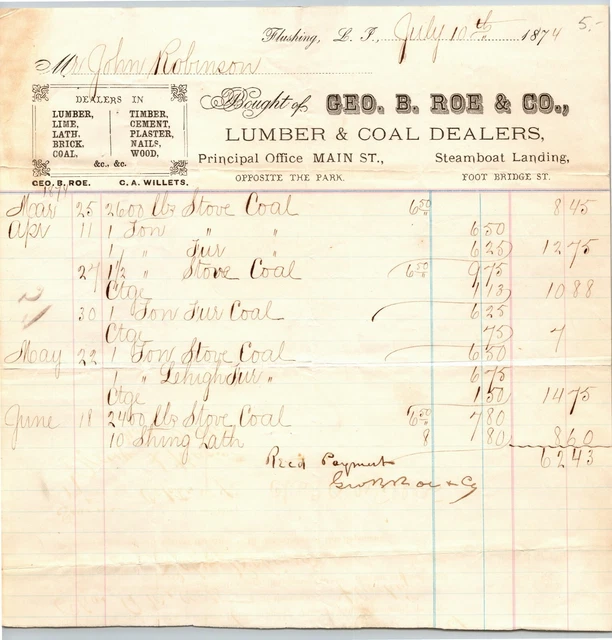 5.-
Flushing, L. I., July 10th 1874
Mr John Robinson
Bought of GEO. B. ROE & CO.,
LUMBER & COAL DEALERS,
Principal Office MAIN ST., Steamboat Landing,
OPPOSITE THE PARK. FOOT BRIDGE ST.
DEALERS IN
LUMBER, TIMBER,
LIME, CEMENT,
LATH. PLASTER,
BRICK. NAILS,
COAL, WOOD,
&c., &c.
GEO. B. ROE. C. A. WILLETS.
1874
Mar 25 2600 lbs Stove Coal 6 50 8 45
Apr 11 1 Ton " " 6 50
1 " Fur " 6 25 12 75
27 1 1/2 " Stove Coal 6 50 9 75
Ctge 1 13 10 88
30 1 Ton Fur Coal 6 25
Ctge 75 7
May 22 1 Ton Stove Coal 6 50
1 " Lehigh Fur " 6 75
Ctge 1 50 14 75
June 18 2400 lbs Stove Coal 6 50 7 80
10 Shing Lath 8 80 8 60
62 43
Recd Payment
Geo B Roe & Co